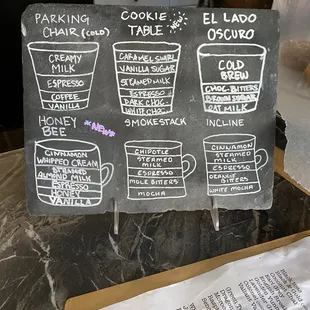 PARKING
CHAIR (COLD)
CREAMY
MILK
ESPRESSO
COFFEE
VANILLA
COOKIE
TABLE
NEW
CARAMEL SWIRL
VANILLA SUGAR
STEAMED MILK
ESPRESSO
DARK CHOC.
WHITE CHOC.
EL LADO
OSCURO
COLD
BREW
CHOC. BITTERS
BROWN SUGAR
OAT MILK
HONEY
BEE
*NEW*
CINNAMON
WHIPPED CREAM
STEAMED
ALMOND MILK
ESPRESSO
HONEY
VANILLA
SMOKESTACK
CHIPOTLE
STEAMED
MILK
ESPRESSO
MOLE BITTERS
MOCHA
INCLINE
CINNAMON
STEAMED
MILK
ESPRESSO
ORANGE
BITTERS
WHITE MOCHA